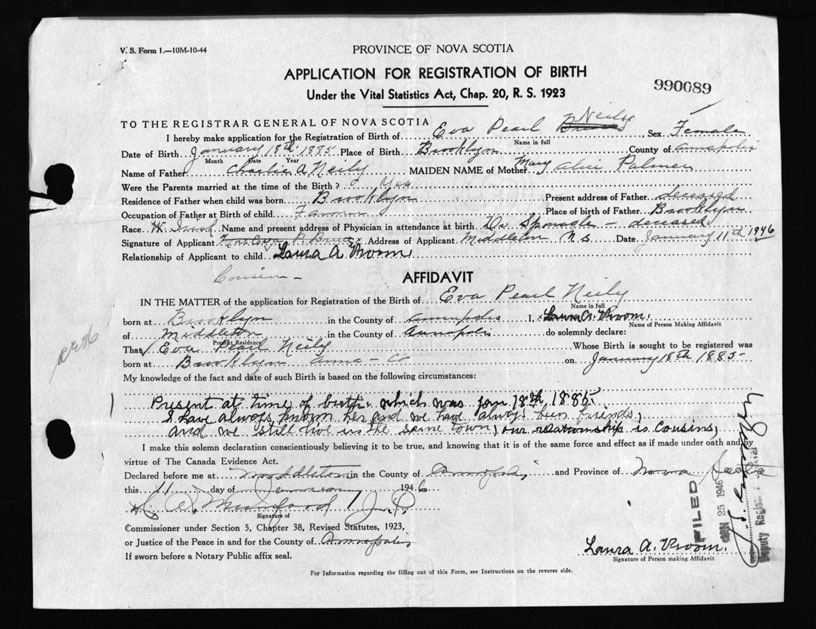 V. S. Form 1.—10M-10-44
PROVINCE OF NOVA SCOTIA
APPLICATION FOR REGISTRATION OF BIRTH
Under the Vital Statistics Act, Chap. 20, R. S. 1923
990089
TO THE REGISTRAR GENERAL OF NOVA SCOTIA
I hereby make application for the Registration of Birth of Eva Pearl Neily Sex Female
Name in full
Date of Birth January 18th 1885 Place of Birth Brooklyn County of Annapolis
Month Date Year
Name of Father Charlie A Neily MAIDEN NAME of Mother Mary Alice Palmer
Were the Parents married at the time of the Birth? Yes
Residence of Father when child was born Brooklyn Present address of Father deceased
Occupation of Father at Birth of child Farmer Place of birth of Father Brooklyn
Race Name and present address of Physician in attendance at birth Dr Sponagle - deceased
Signature of Applicant Address of Applicant Middleton N S Date January 11th 1946
Relationship of Applicant to child Laura A. Vroom
Cousin -
AFFIDAVIT
IN THE MATTER of the application for Registration of the Birth of Eva Pearl Neily
Name in full
born at Brooklyn in the County of Annapolis I, Laura A. Vroom.
Name of Person Making Affidavit
of Middleton in the County of Annapolis do solemnly declare:
Present Residence
That Eva Pearl Neily Whose Birth is sought to be registered was
born at Brooklyn Anna - Co on January 18th 1885-
My knowledge of the fact and date of such Birth is based on the following circumstances:
Present at time of birth which was Jan 18th, 1885.
I have always known her and we have always been friends,
and we still live in the same town, our relationship is cousins,
I make this solemn declaration conscientiously believing it to be true, and knowing that it is of the same force and effect as if made under oath and by
virtue of The Canada Evidence Act.
Declared before me at Middleton in the County of Annapolis and Province of Nova Scotia
this 11 day of January 1946
Signature of
Commissioner under Section 5, Chapter 38, Revised Statutes, 1923,
or Justice of the Peace in and for the County of Annapolis
If sworn before a Notary Public affix seal.
Laura A. Vroom.
Signature of Person making Affidavit
For Information regarding the filling out of this Form, see Instructions on the reverse side.
FILED
JAN 25 1946
Deputy Registrar